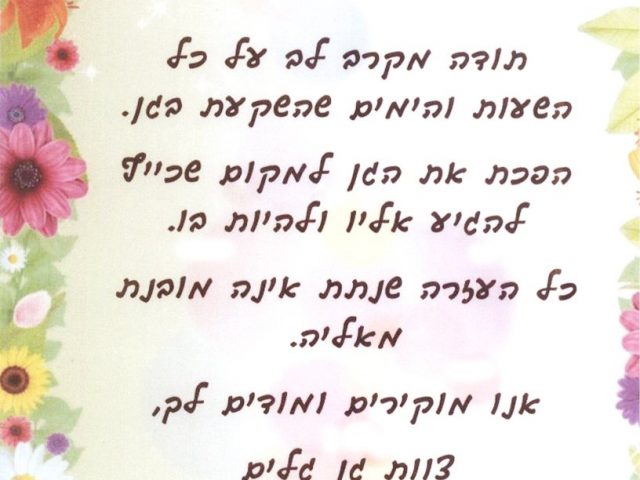 תודה מקרב לב על כל
השעות והימים שהשקעת בגן.
הפכת את הגן למקום שכייף
להגיע אליו ולהיות בו.
כל העזרה שנתת אינה מובנת
מאליה.
אנו מוקירים ומודים לך,
צוות גן גלים